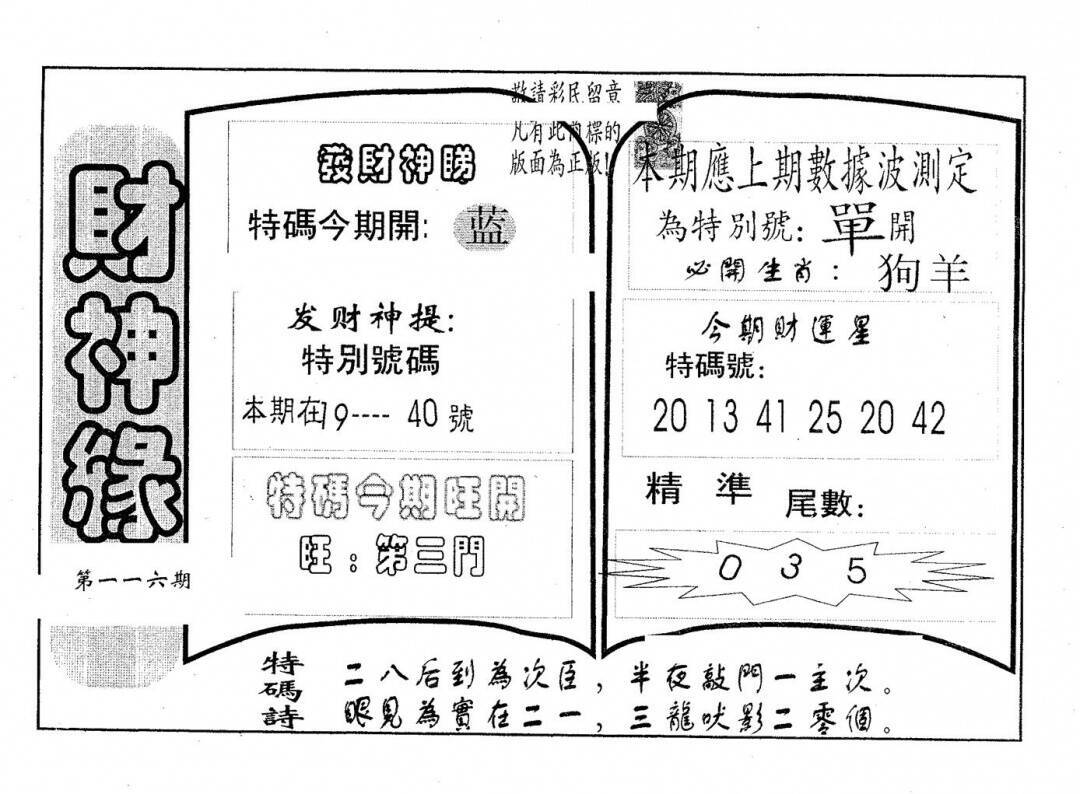 財神緣
第一一六期
敬請彩民留意
凡有此商標的
版面為正版!
發財神睇
特碼今期開: 蓝
发财神提:
特別號碼
本期在19---- 40號
特碼今期旺開
旺:第三門
本期應上期數據波測定
為特別號:單開
必開生肖: 狗羊
今期財運星
特碼號:
20 13 41 25 20 42
精準 尾數:
0 3 5
特碼詩
二八后到為次臣,半夜敲門一主次。
眼見為實在二一,三龍吠影二零個。